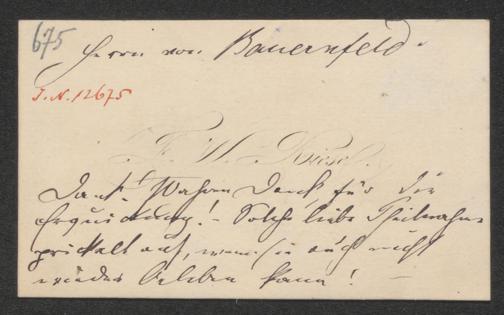 675
Herrn von Bauernfeld.
I.N. 12675
F. W.
Dank! Wahren Dank für die
Erquickung! – Solche liebe Theilnahme
prickelt auf, wenn sie auch nicht
wieder beleben kann! –